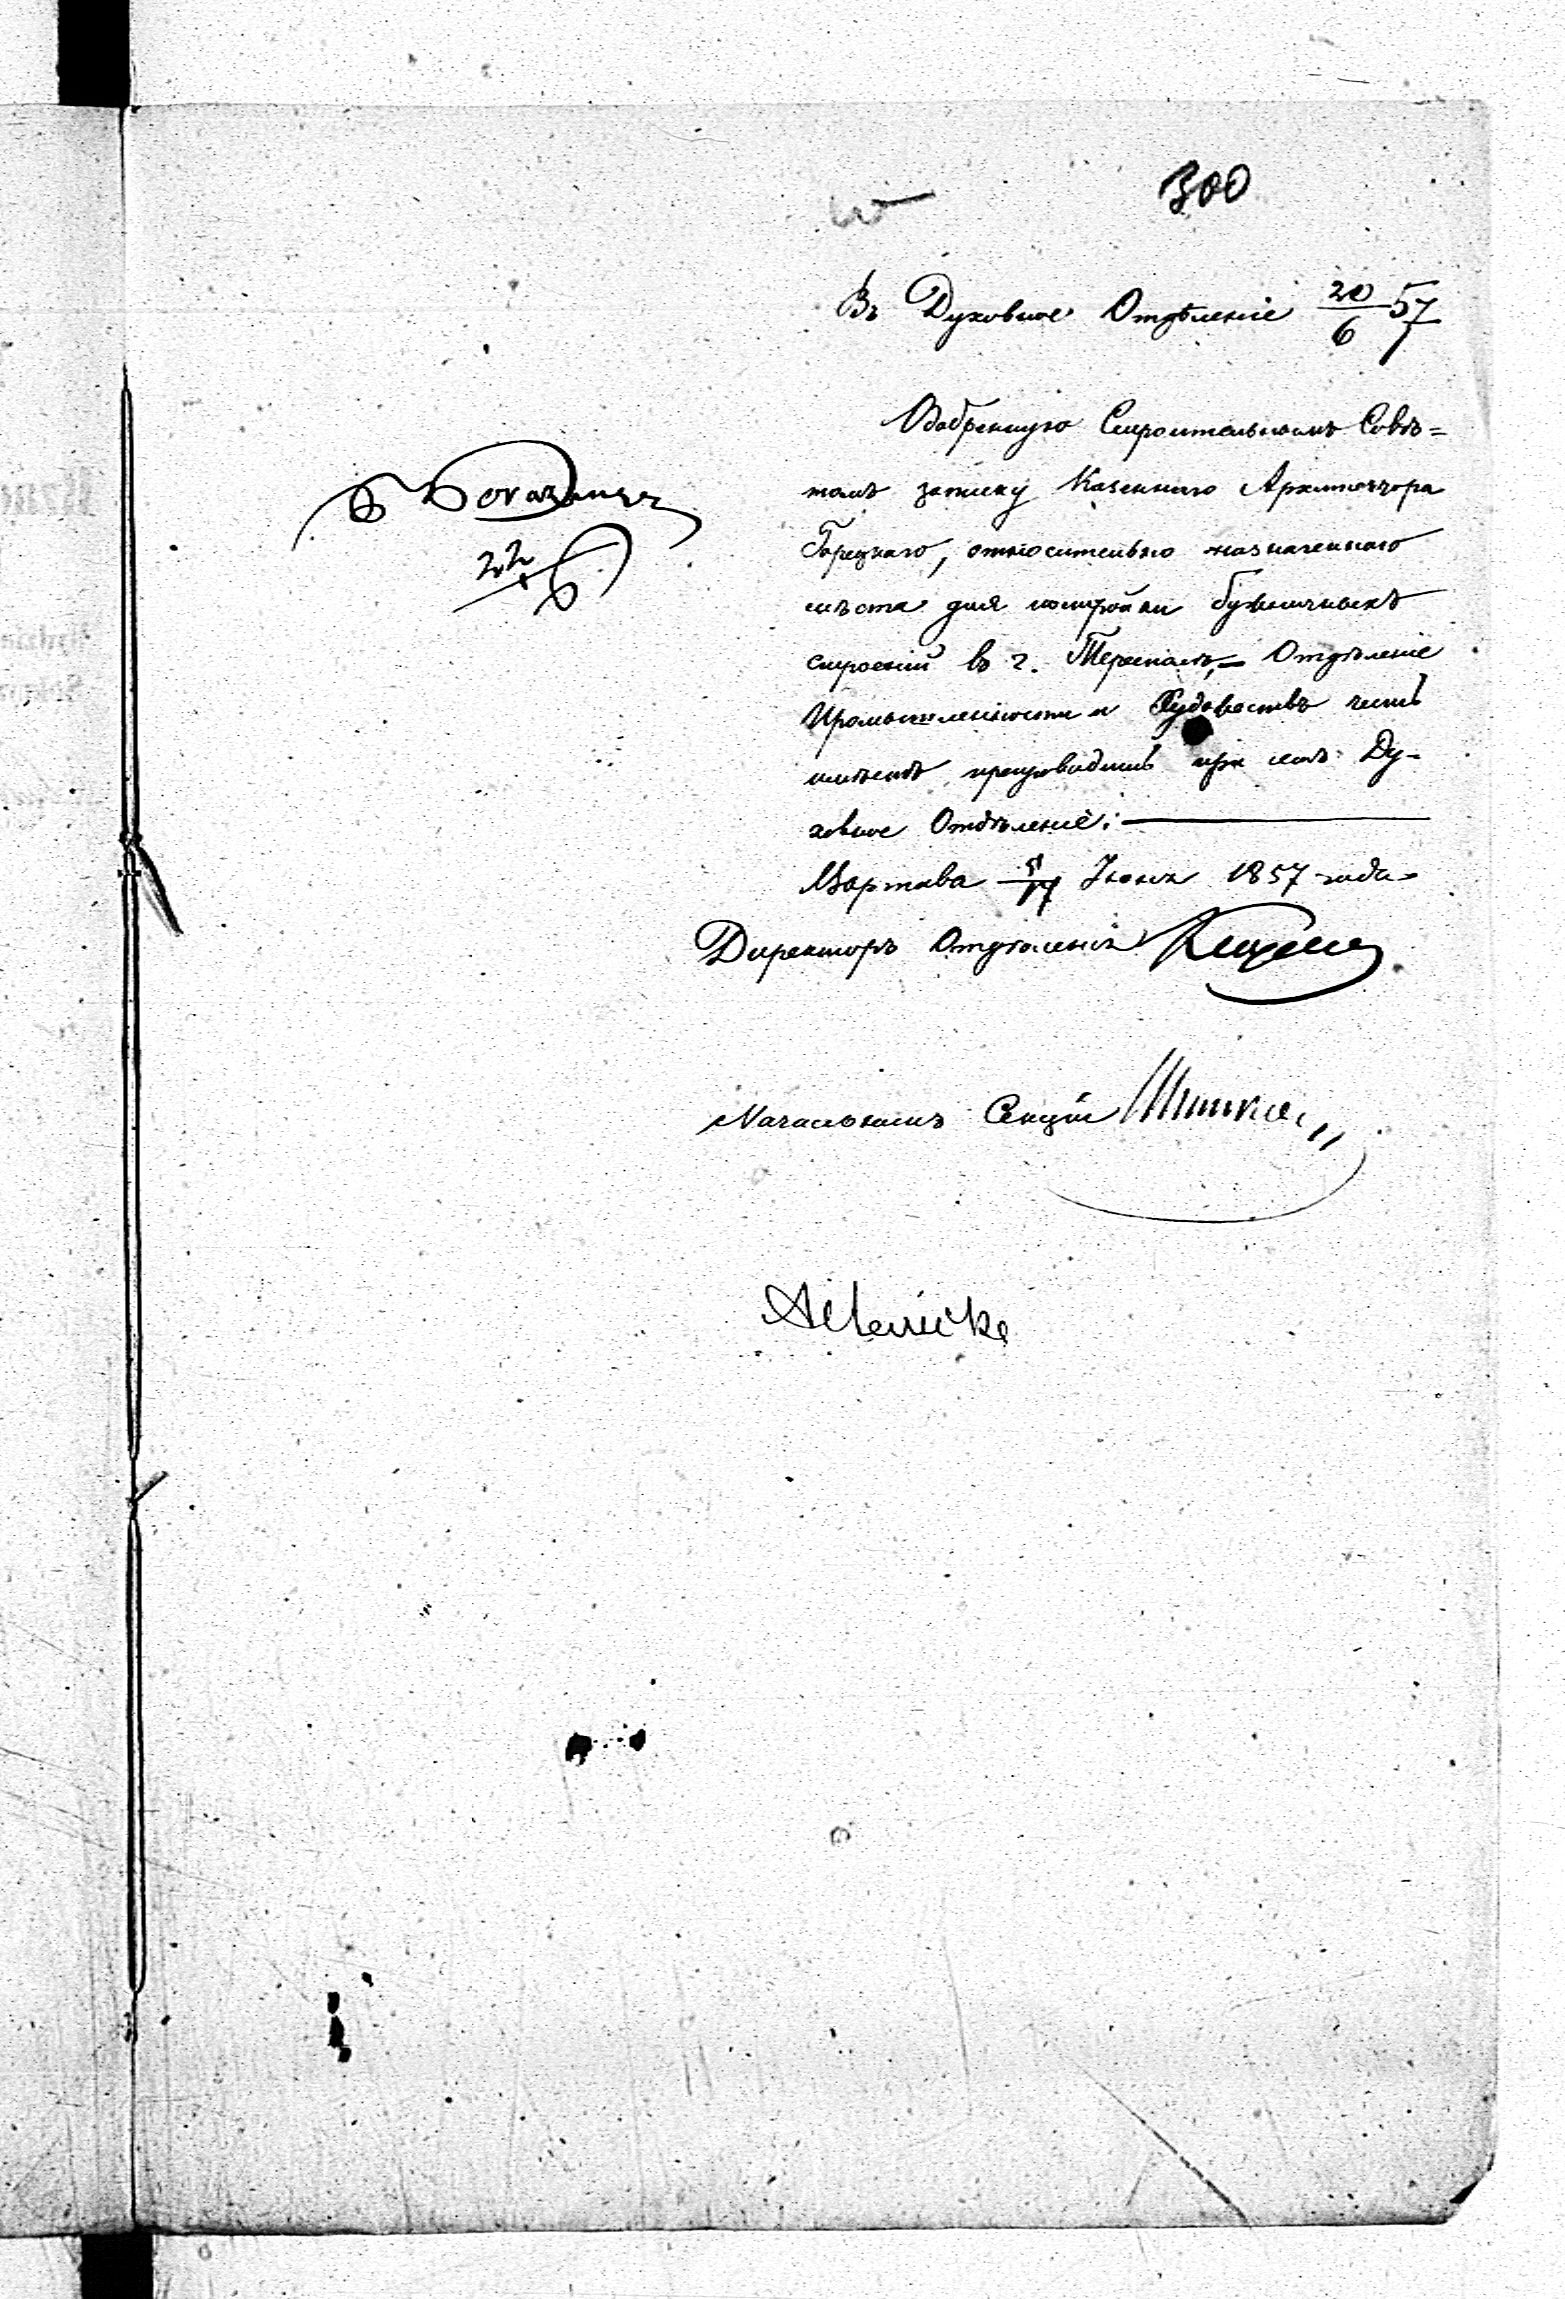 300
Въ Духовное Отдѣленіе 20/6 57
Одобренную Строительнымъ Совѣ=
томъ записку Казеннаго Архитектора
Горецкаго, относительно назначеннаго
мѣста для постройки бужничныхъ
строеній въ г. Тересполѣ, — Отдѣленіе
Промышленности и Художествъ честь
имѣетъ препроводить при семъ Ду-
ховное Отдѣленіе. —
Варшава 5/17 Іюня 1857 года
Директоръ Отдѣленія
Начальникъ Секціи